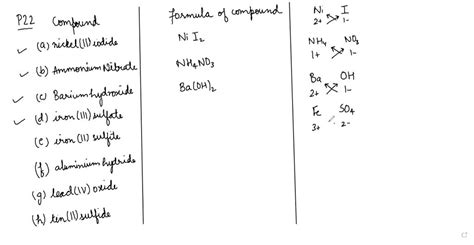 P22 Compound
Formula of compound
(a) nickel(II) iodide
Ni I2
Ni I
2+ 1-
(b) Ammonium Nitrate
NH4NO3
NH4 NO3
1+ 1-
(c) Barium hydroxide
Ba(OH)2
Ba OH
2+ 1-
(d) iron(III) sulfate
Fe SO4
3+ 2-
(e) iron(II) sulfite
(f) aluminium hydride
(g) lead(IV) oxide
(h) ten(II) sulfide